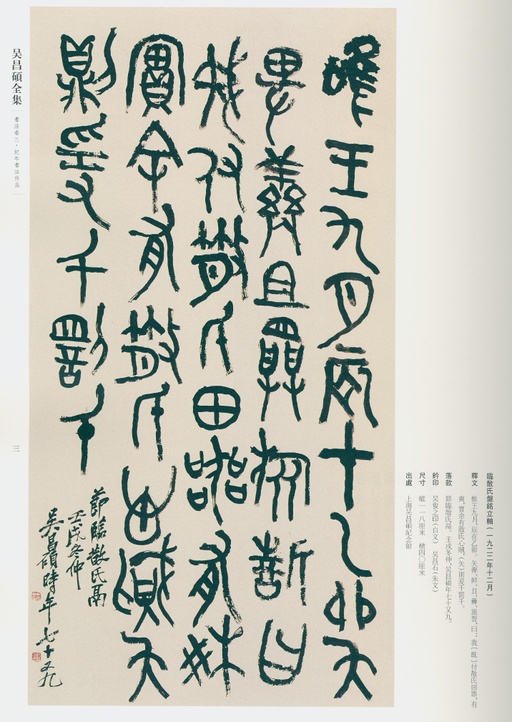 唯王九月辰才乙卯夨
卑且旅誓曰
我付散氏田器有爽
實余有散氏心賊夨
則爰千罰千
節臨散氏鬲
壬戌冬仲
吳昌碩時年七十又九
臨散氏盤銘立軸(一九二二年十二月)
落款 節臨散氏鬲。壬戌冬仲,吳昌碩年七十又九。
鈐印 吳俊之印(白文) 吳昌石(朱文)
尺寸 縱一一八厘米 橫四〇厘米
出處 上海吳昌碩紀念館
吳昌碩全集
書法卷三·紀年書法作品
三